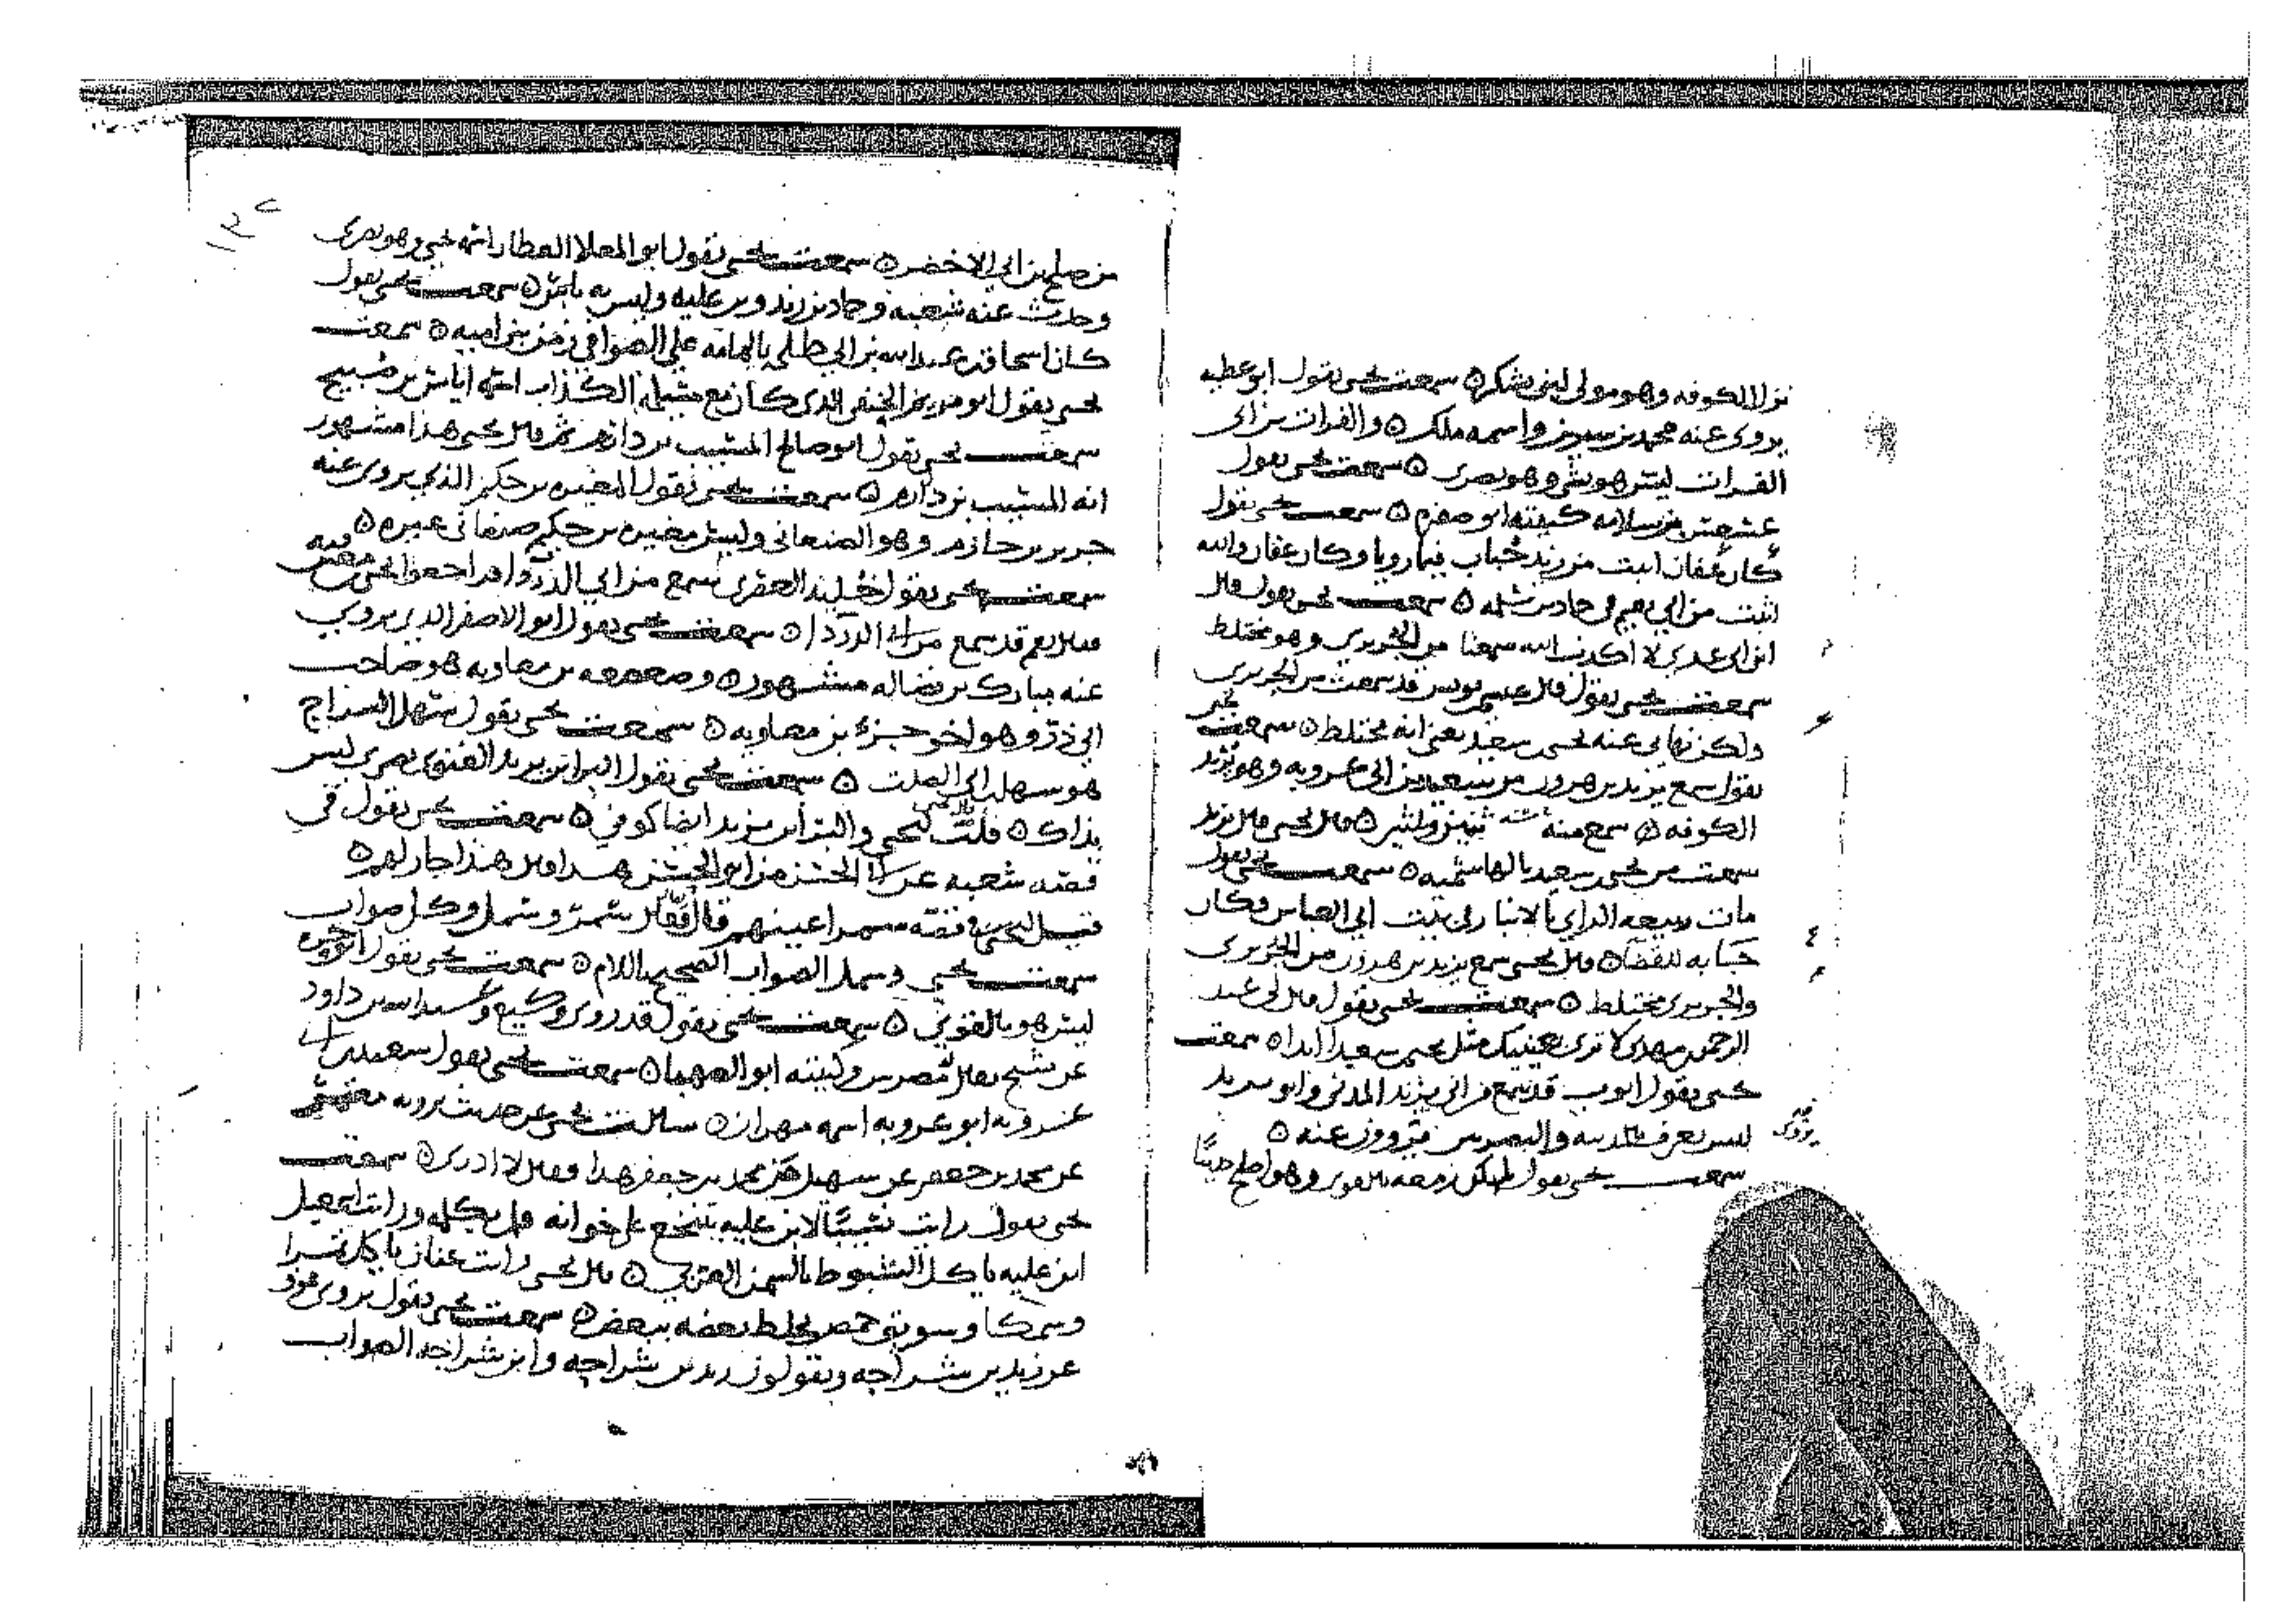 نزل الكوفه وهو مولى لبني يشكر ه سمعت يحيى يقول ابو عطيه
يروى عنه محمد بن سيرين واسمه ملك ه والفرات بن ابى
الفرات ليس هو بشي وهو بصرى ه سمعت يحيى يقول
بن سلامه كنيته ابو ه سمعت يحيى يقول
كان عفان اثبت من زيد بن حباب فيما رويا وكان عفان والله
اثبت من ابي نعيم في حماد بن سلمه ه سمعت يحيى يقول قال
ابن ابى عدى لا اكذب الله سمعنا من الجريرى وهو مختلط
سمعت يحيى يقول قال عيسى بن يونس قد سمعت من الجريرى
ولكن نهاني عنه يحيى بن سعيد يعني انه مختلط ه سمعت يحيى
يقول سمع يزيد بن هرون من سعيد بن ابى عروبه وهو يريد
الكوفه ه سمع منه سنه ثنتين وثلثين ه قال يحيى قال يزيد
سمعت من يحيى بن سعيد بالهاشميه ه سمعت يحيى يقول
مات ربيعه الراي بالانبار في بيت ابي العباس وكان
جا به للقضا ه قال يحيى سمع يزيد بن هرون من الجريرى
والجريرى مختلط ه سمعت يحيى يقول قال لى عبد
الرحمن بن مهدى لا ترى بعينيك مثل يحيى بن سعيد ابدا ه سمعت
يحيى يقول ايوب قد سمع من ابي يزيد المدني وابو يزيد
ليس يعرف بالمدينه والبصريين يروون عنه ه
سمعت يحيى يقول لم يكن زمعه بالقوى وهو اصلح حديثا
من صلح بن ابي الاخضر ه سمعت يحيى يقول ابو المعلا العطار اسمه يحيى وهو بصرى
وحدث عنه شعبه وحماد بن زيد وبن عليه وليس به باس ه سمعت يحيى يقول
كان اسحاق بن عبد الله بن ابي طلحه باليمامه على الصوافي زمن بني اميه ه سمعت
يحيى يقول ابو مريم الحنفي الذى كان مع مسيلمه الكذاب اسمه اياس بن ضبيح
سمعت يحيى يقول ابو صالح المسيب بن دارم ثم قال يحيى هذا مشهور
انه المسيب بن دارم ه سمعت يحيى يقول المغيره بن حكيم الذى يروى عنه
جرير بن حازم وهو الصنعانى وليس مغيره بن حكيم صنعانى غيره ه
سمعت يحيى يقول خليد العصرى سمع من ابي الدردا فراجعوا يحيى فيه
فقال نعم قد سمع من ابى الدردا ه سمعت يحيى يقول ابو الاصفر الذى يروى
عنه مبارك بن فضاله مشهور ه وصعصعه بن معاويه هو صاحب
ابي ذر وهو اخو جزء بن معاويه ه سمعت يحيى يقول سهل السراج
هو سهل بن ابي الصلت ه سمعت يحيى يقول البرا بن يزيد الغنوى بصرى ليس
بذاك ه قلت ليحيى والبرا بن يزيد ايضا كوفي ه سمعت يحيى يقول في
قصه شعبه عن ابى الحسن من ابو الحسن هذا قال هذا جار لهم ه
فقيل ليحيى في قصه سمر اعينهم قال فقال سمر وسمل وكل صواب
سمعت يحيى وسمل الصواب الصحيح باللام ه سمعت يحيى يقول ابو حره
ليس هو بالقوى ه سمعت يحيى يقول قد روى وكيع وعبد الله بن داود
عن شيخ يقال وكنيته ابو الصهبا ه سمعت يحيى يقول سعيد بن ابى
عروبه ابو عروبه اسمه مهران ه سالت يحيى عن حديث يرويه معتمر
عن محمد بن جعفر عن سهيل من محمد بن جعفر هذا فقال لا ادرى ه سمعت
يحيى يقول رايت لابن عليه تنخع على خوانه فلم ياكله ورايت اسمعيل
ابن عليه ياكل الشبوط بالسمن العربي ه قال يحيى رايت عفان ياكل تمرا
وسمكا وسويق حمص يخلط بعضه ببعض ه سمعت يحيى يقول يروى عوف
عن زيد بن شراجه ويقولون زيد بن شراجه وابن شراجه الصواب